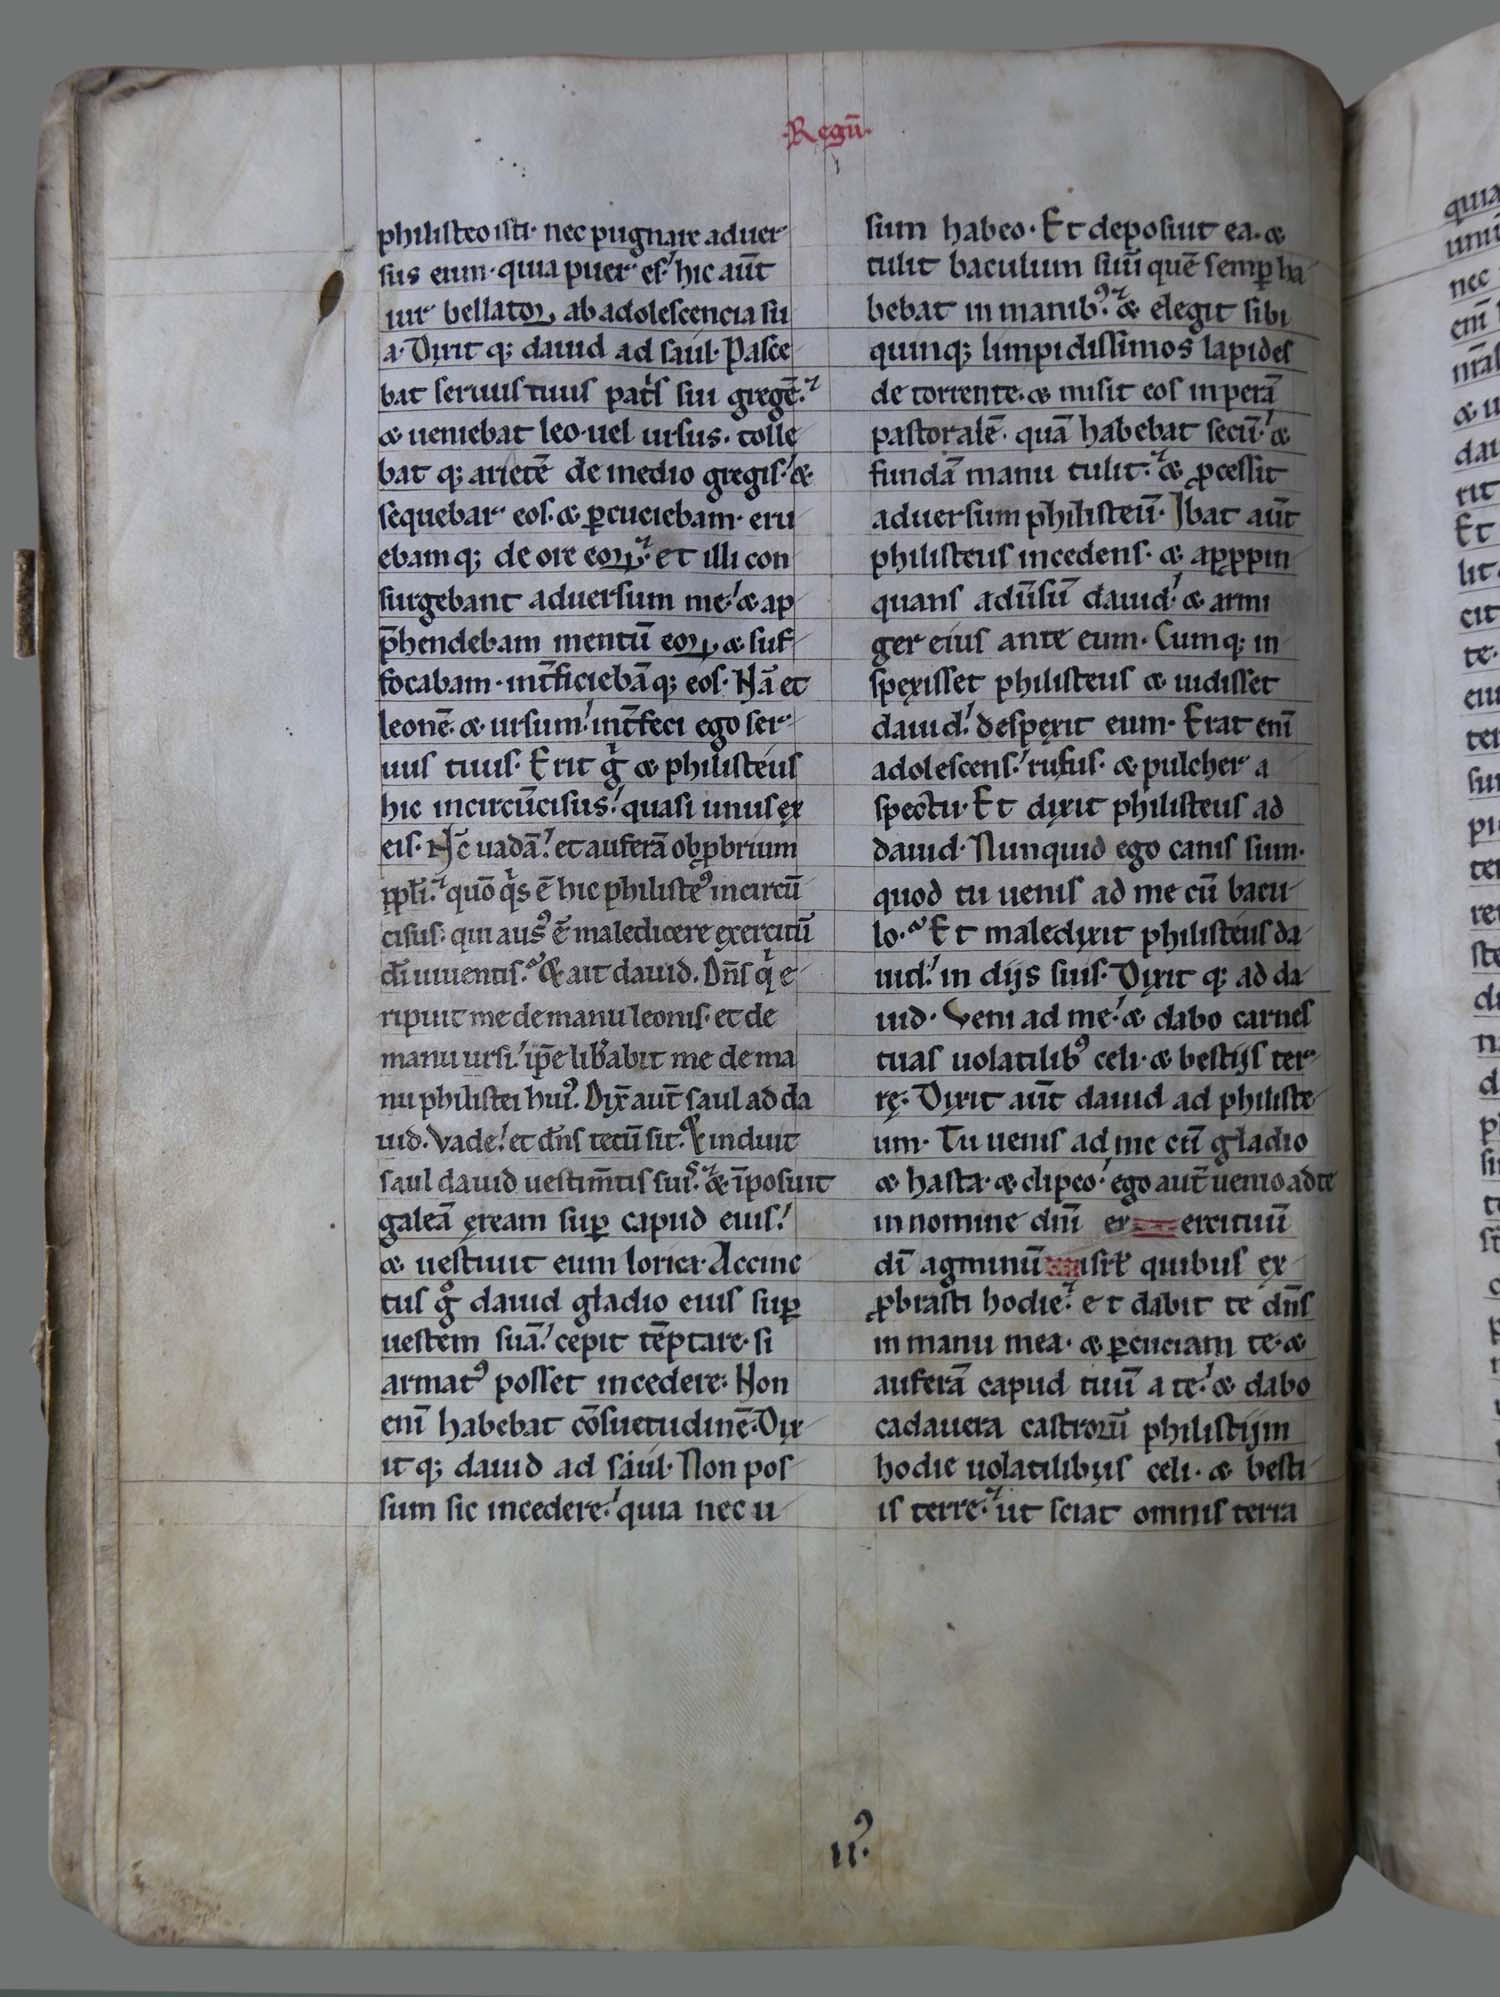 ·Regū·
philisteo isti· nec pugnare aduer
sus eum· quia puer es! hic aūt
uir bellatoꝝ ab adolescencia su
a· Dixit q; dauid ad saul· Pasce
bat seruus tuus pat's sui gregē.
& ueniebat leo· uel ursus· tolle
bat q; arietē de medio gregis! &
sequebar eos· & ꝑcuciebam· eru
ebam q; de ore eoꝝ· et illi con
surgebant aduersum me! & ap
p̄hendebam mentū eoꝝ & suf
focabam· int̄ficiebā q; eos· Nā et
leonē· & ursum! int̄feci ego ser
uus tuus· Erit g̊ & philisteus
hic incircūcisus! quasi unus ex
eis· Nc̄ uadā! et auferā obꝓbrium
ppl̄i· quō q's ē hic philisteꝰ incircū
cisus· qui ausꝰ ē maledicere exercitū
dī uiuentis· & ait dauid. Dn̄s q' e
ripuit me de manu leonis· et de
manu ursi! ip̄e lib'abit me de ma
nu philistei huiꝰ. Dix̄ aut̄ saul ad da
uid. Vade! et dn̄s tecū sit. & induit
saul dauid uestim̄tis suis. & īposuit
galeā ęream suꝑ capud eius!
& uestiuit eum lorica· Accinc
tus g̊ dauid gladio eius suꝑ
uestem suā! cepit tēptare· si
armatꝰ posset incedere· Non
enī habebat cōsuetudinē· Dix
it q; dauid ad saul· Non pos
sum sic incedere! quia nec u
sum habeo· Et deposuit ea· &
tulit baculum suū quē semꝑ ha
bebat in manibꝰ· & elegit sibi
quinq; limpidissimos lapides
de torrente· & misit eos in perā
pastoralē· quā habebat secū! &
fundā manu tulit· & ꝓcessit
aduersum philisteū· Ibat aūt
philisteus incedens· & apꝓpin
quans adūsū dauid! & armi
ger eius ante eum· Cumq; in
spexisset philisteus & uidisset
dauid! despexit eum· Erat enī
adolescens! rufus· & pulcher a
spectu· Et dixit philisteus ad
dauid· Nunquid ego canis sum·
quod tu uenis ad me cū bacu
lo· Et maledixit philisteus da
uid! in dijs suis· Dixit q; ad da
uid· Veni ad me! & dabo carnes
tuas uolatilibꝰ celi· & bestijs ter
rę· Dixit aūt dauid ad philiste
um· Tu uenis ad me cū gladio
& hasta· & clipeo! ego aūt uenio ad te
in nomine dn̄i ex ercituū
dī agminū isrl̄ quibus ex
ꝓbrasti hodie· et dabit te dn̄s
in manu mea· & ꝑcuciam te· &
auferā capud tuū a te! & dabo
cadauera castrorū philistijm
hodie uolatilibus celi· & besti
is terre· ut sciat omnis terra
iiꝰ·